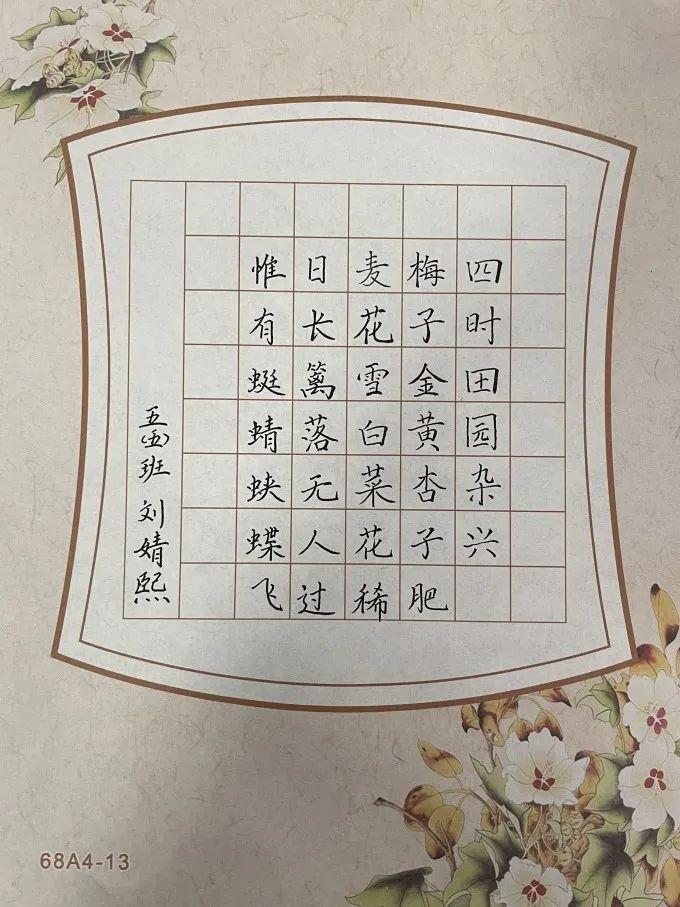 四时田园杂兴
梅子金黄杏子肥
麦花雪白菜花稀
日长篱落无人过
惟有蜻蜓蛱蝶飞
五(五)班 刘婧熙
68A4-13